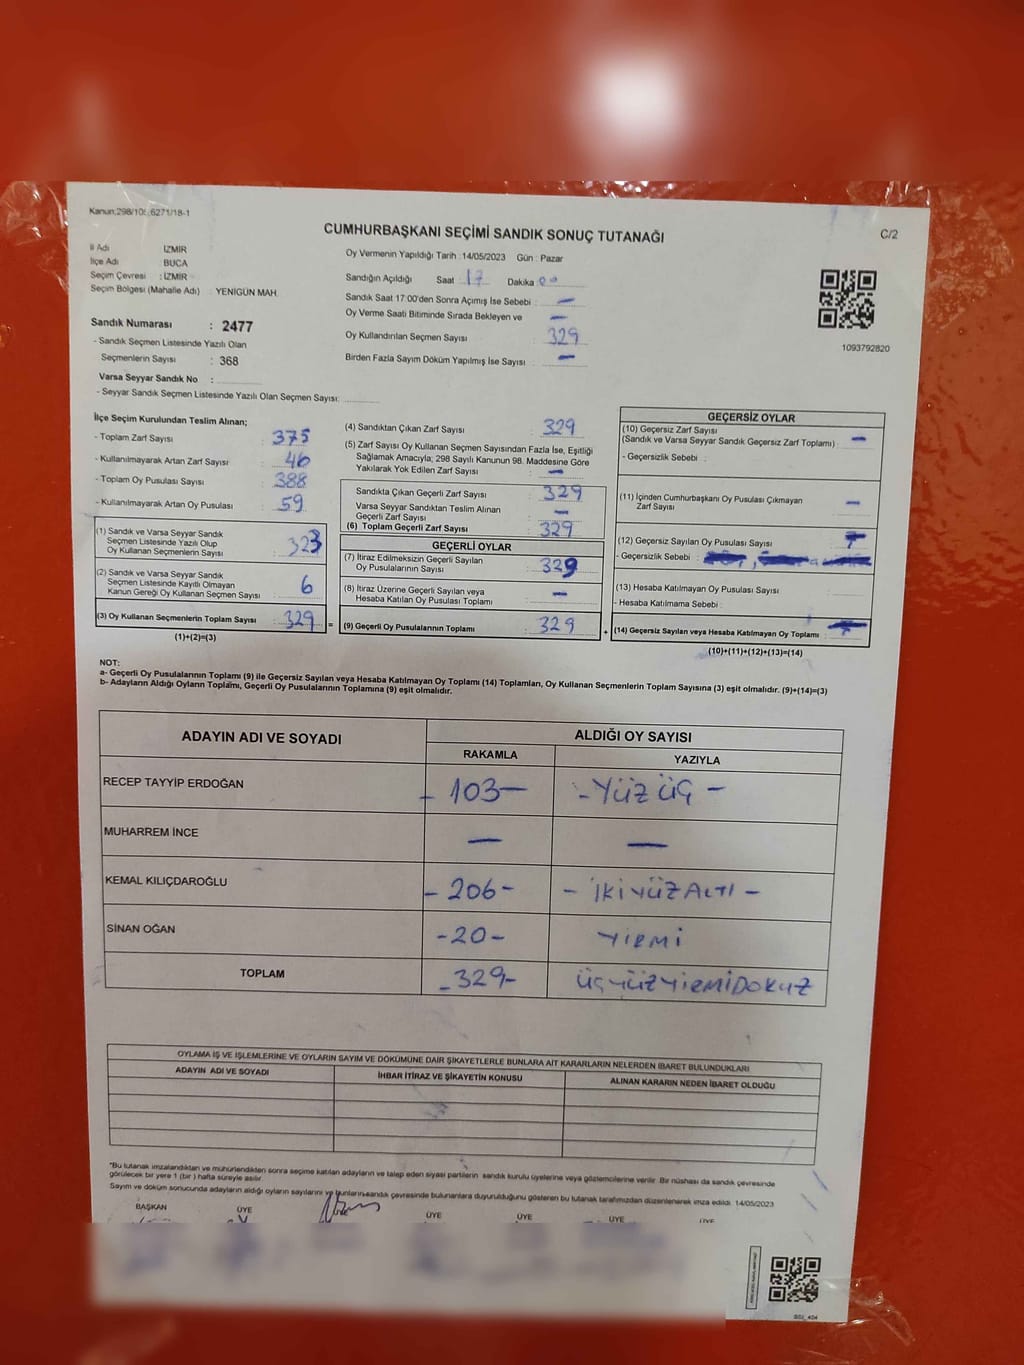 Kanun;298/105;6271/18-1
CUMHURBAŞKANI SEÇİMİ SANDIK SONUÇ TUTANAĞI
C/2
İl Adı İZMİR
İlçe Adı BUCA
Seçim Çevresi : İZMİR
Seçim Bölgesi (Mahalle Adı) : YENİGÜN MAH.
Sandık Numarası : 2477
- Sandık Seçmen Listesinde Yazılı Olan
Seçmenlerin Sayısı : 368
Varsa Seyyar Sandık No :
- Seyyar Sandık Seçmen Listesinde Yazılı Olan Seçmen Sayısı:
Oy Vermenin Yapıldığı Tarih : 14/05/2023 Gün : Pazar
Sandığın Açıldığı Saat 17 Dakika 00
Sandık Saat 17:00'den Sonra Açımış İse Sebebi : —
Oy Verme Saati Bitiminde Sırada Bekleyen ve —
Oy Kullandırılan Seçmen Sayısı : 329
Birden Fazla Sayım Döküm Yapılmış İse Sayısı : —
1093792820
İlçe Seçim Kurulundan Teslim Alınan;
- Toplam Zarf Sayısı : 375
- Kullanılmayarak Artan Zarf Sayısı : 46
- Toplam Oy Pusulası Sayısı : 388
- Kullanılmayarak Artan Oy Pusulası : 59
(1) Sandık ve Varsa Seyyar Sandık
Seçmen Listesinde Yazılı Olup
Oy Kullanan Seçmenlerin Sayısı : 323
(2) Sandık ve Varsa Seyyar Sandık
Seçmen Listesinde Kayıtlı Olmayan
Kanun Gereği Oy Kullanan Seçmen Sayısı : 6
(3) Oy Kullanan Seçmenlerin Toplam Sayısı : 329 =
(1)+(2)=(3)
(4) Sandıktan Çıkan Zarf Sayısı : 329
(5) Zarf Sayısı Oy Kullanan Seçmen Sayısından Fazla İse, Eşitliği
Sağlamak Amacıyla; 298 Sayılı Kanunun 98. Maddesine Göre
Yakılarak Yok Edilen Zarf Sayısı : —
Sandıkta Çıkan Geçerli Zarf Sayısı : 329
Varsa Seyyar Sandıktan Teslim Alınan
Geçerli Zarf Sayısı : —
(6) Toplam Geçerli Zarf Sayısı : 329
GEÇERLİ OYLAR
(7) İtiraz Edilmeksizin Geçerli Sayılan
Oy Pusulalarının Sayısı : 329
(8) İtiraz Üzerine Geçerli Sayılan veya
Hesaba Katılan Oy Pusulası Toplamı : —
(9) Geçerli Oy Pusulalarının Toplamı : 329 +
GEÇERSİZ OYLAR
(10) Geçersiz Zarf Sayısı
(Sandık ve Varsa Seyyar Sandık Geçersiz Zarf Toplamı) : —
- Geçersizlik Sebebi :
(11) İçinden Cumhurbaşkanı Oy Pusulası Çıkmayan
Zarf Sayısı : —
(12) Geçersiz Sayılan Oy Pusulası Sayısı :
- Geçersizlik Sebebi :
(13) Hesaba Katılmayan Oy Pusulası Sayısı :
- Hesaba Katılmama Sebebi :
(14) Geçersiz Sayılan veya Hesaba Katılmayan Oy Toplamı :
(10)+(11)+(12)+(13)=(14)
NOT:
a- Geçerli Oy Pusulalarının Toplamı (9) ile Geçersiz Sayılan veya Hesaba Katılmayan Oy Toplamı (14) Toplamları, Oy Kullanan Seçmenlerin Toplam Sayısına (3) eşit olmalıdır. (9)+(14)=(3)
b- Adayların Aldığı Oyların Toplamı, Geçerli Oy Pusulalarının Toplamına (9) eşit olmalıdır.
ADAYIN ADI VE SOYADI ALDIĞI OY SAYISI
RAKAMLA YAZIYLA
RECEP TAYYİP ERDOĞAN - 103 - - YÜZ ÜÇ -
MUHARREM İNCE — —
KEMAL KILIÇDAROĞLU - 206 - - İKİYÜZ ALTI -
SİNAN OĞAN - 20 - YİRMİ
TOPLAM - 329 - ÜÇYÜZYİRMİDOKUZ
OYLAMA İŞ VE İŞLEMLERİNE VE OYLARIN SAYIM VE DÖKÜMÜNE DAİR ŞİKAYETLERLE BUNLARA AİT KARARLARIN NELERDEN İBARET BULUNDUKLARI
ADAYIN ADI VE SOYADI İHBAR İTİRAZ VE ŞİKAYETİN KONUSU ALINAN KARARIN NEDEN İBARET OLDUĞU
*Bu tutanak imzalandıktan ve mühürlendikten sonra seçime katılan adayların ve talep eden siyasi partilerin sandık kurulu üyelerine veya gözlemcilerine verilir. Bir nüshası da sandık çevresinde
görülecek bir yere 1 (bir) hafta süreyle asılır.
Sayım ve döküm sonucunda adayların aldığı oyların sayılarını ve bunların sandık çevresinde bulunanlara duyurulduğunu gösteren bu tutanak tarafımızdan düzenlenerek imza edildi. 14/05/2023
BAŞKAN ÜYE ÜYE ÜYE ÜYE ÜYE ÜYE